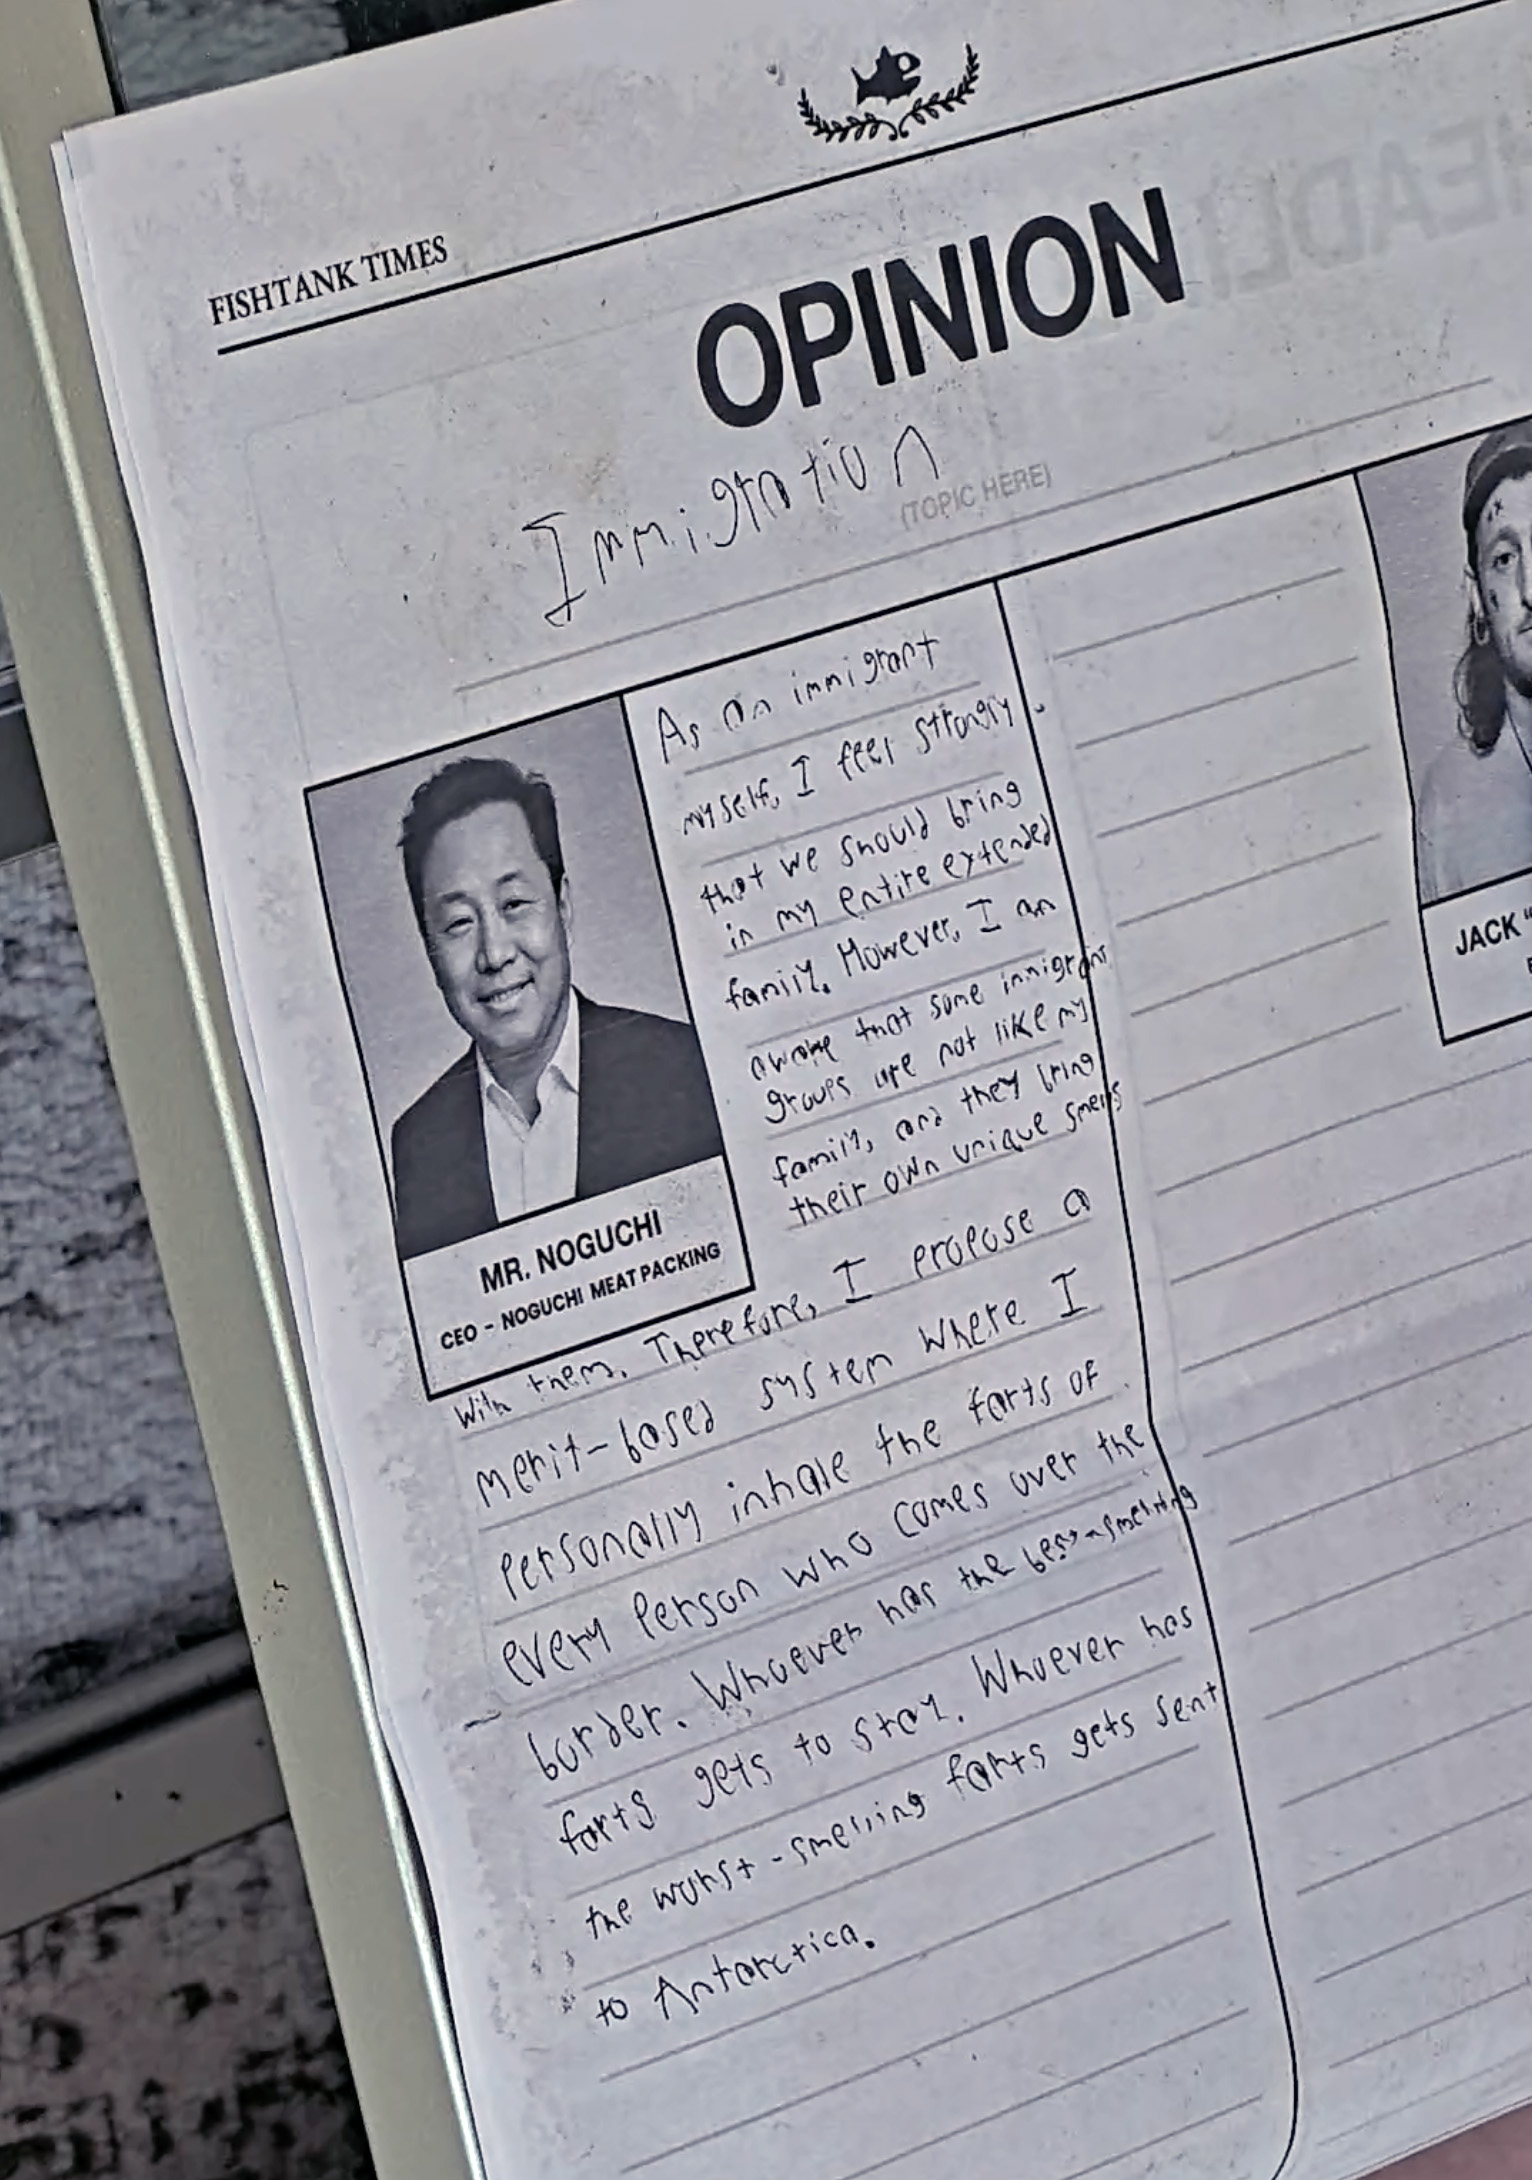 FISHTANK TIMES
OPINION
HEADLI
Immigration
(TOPIC HERE)
As an immigrant
myself, I feel strongly
that we should bring
in my entire extended
family. However, I am
aware that some immigrant
groups are not like my
family, and they bring
their own unique smells
with them. Therefore, I propose a
merit-based system where I
personally inhale the farts of
every person who comes over the
border. Whoever has the best-smelling
farts gets to stay. Whoever has
the worst-smelling farts gets sent
to Antarctica.
MR. NOGUCHI
CEO - NOGUCHI MEAT PACKING
JACK "